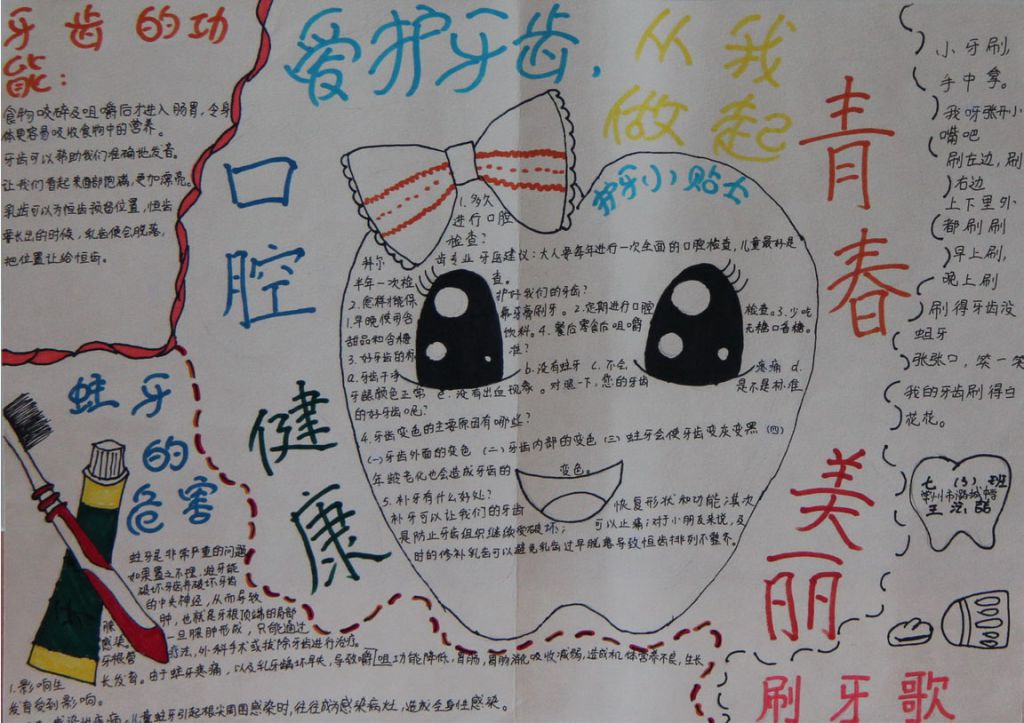 牙齿的功
能：
食物咬碎及咀嚼后才进入肠胃，令身
体更容易吸收食物中的营养。
牙齿可以帮助我们准确地发音。
让我们看起来面部饱满，更加漂亮。
乳齿可以为恒齿预留位置，恒齿
要长出的时候，乳齿便会脱落，
把位置让给恒齿。
爱护牙齿，从我
做起
口腔
健康
青春
美丽
护牙小贴士
1.多久
进行口腔
检查？
科尔 齿专业牙医建议：大人要每年进行一次全面的口腔检查，儿童最好是
半年一次检 查。
2.怎样才能保 护好我们的牙齿？
1.早晚使用含 氟牙膏刷牙。2.定期进行口腔 检查。3.少吃
甜品和含糖 饮料。4.餐后零食后咀嚼 无糖口香糖。
3.好牙齿的标 准？
a.牙齿干净 b.没有蛀牙 c.不会 疼痛 d.
牙龈颜色正常 e.没有出血现象。对照一下，您的牙齿 是不是标准
的好牙齿呢？
4.牙齿变色的主要原因有哪些？
(一)牙齿外面的变色 (二)牙齿内部的变色 (三)蛀牙会使牙齿变灰变黑 (四)
年龄老化也会造成牙齿的 变色。
5.补牙有什么好处？
补牙可以让我们的牙齿 恢复形状和功能；其次
是防止牙齿组织继续受破坏； 可以止痛；对于小朋友来说，及
时的修补乳齿可以避免乳齿过早脱离导致恒齿排列不整齐。
蛀牙
的
危害
蛀牙是非常严重的问题
如果置之不理，蛀牙能
破坏牙齿并破坏牙齿
的中央神经，从而导致
脓肿，也就是牙根顶端的局部
感染。一旦脓肿形成，只能通过
牙根管疗法，外科手术或拔除牙齿进行治疗。
1.影响生长发育。由于蛀牙疼痛，以及乳牙龋坏早失，导致咀嚼功能降低，胃肠消化吸收减弱，造成机体营养不良，生长
发育受到影响。
儿童蛀牙引起根尖周围感染时，往往成为感染病灶，造成全身性感染。
小牙刷，
手中拿。
我呀张开小
嘴吧
刷左边，刷
右边
上下里外
都刷刷
早上刷，
晚上刷
刷得牙齿没
蛀牙
张张口，笑一笑
我的牙齿刷得白
花花。
七(3)班
常州市潞城
王
刷牙歌